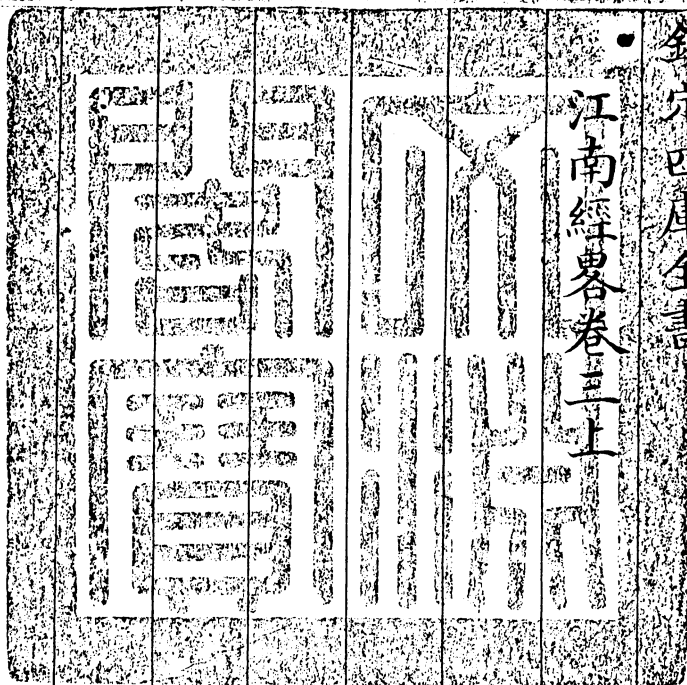 欽定四庫全書
江南經畧卷三上
文淵
閣寶